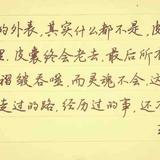 的外表，其实什么都不是，皮
里，皮囊终会老去，最后所
褶皱吞噬，而灵魂不会，这
走过的路，经历过的事，还